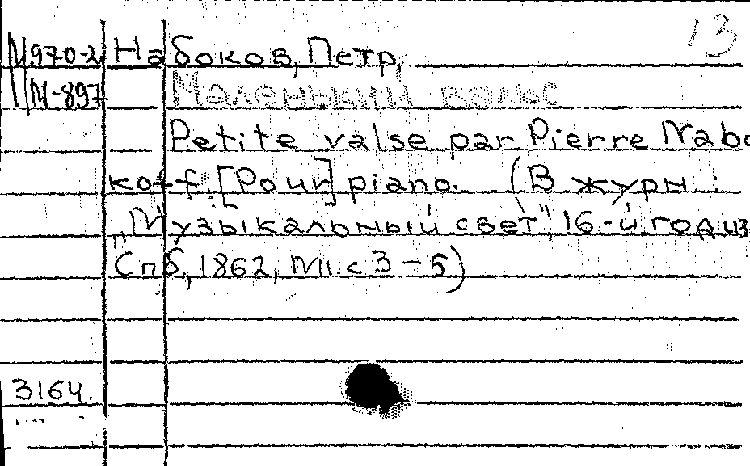 13
М970-2 Набоков, Петр,
М-897 Маленький вальс
Petite valse par Pierre Nabo
koff. [Pour] piano. (В журн.:
„Музыкальный свет", 16-й год из
Спб, 1862, №1. с 3-5)
3164